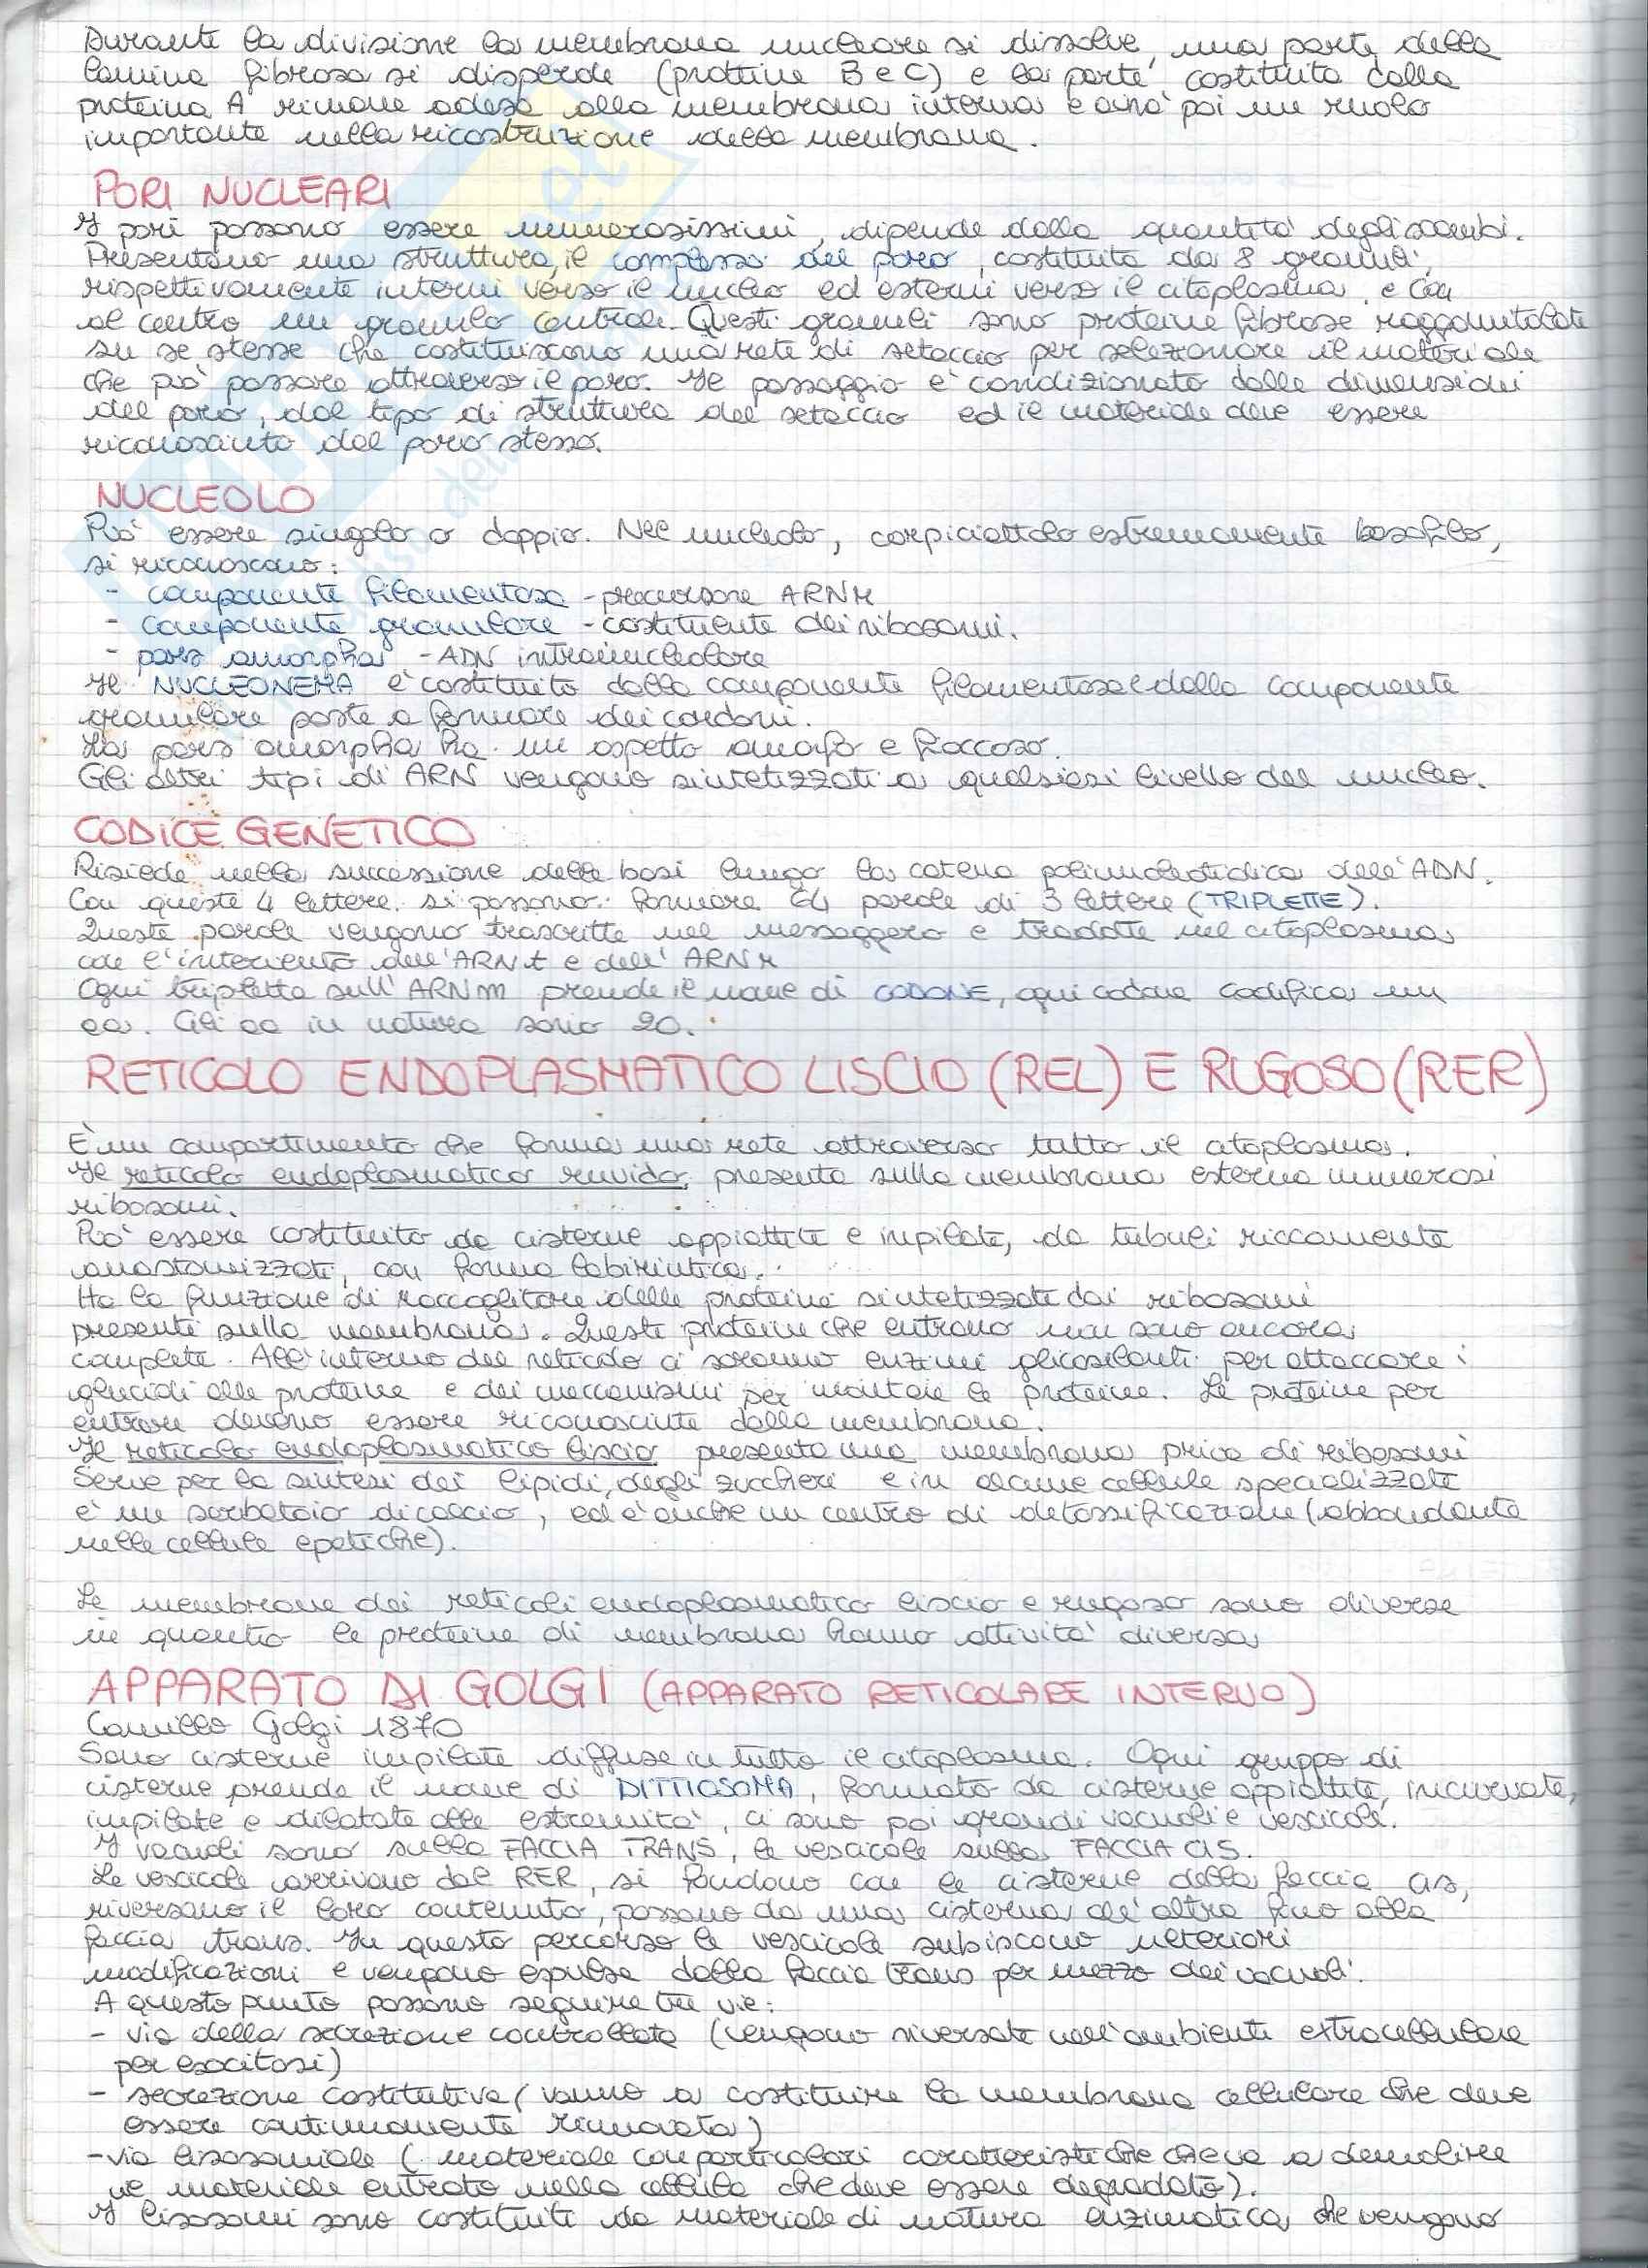 Durante la divisione la membrana nucleare si dissolve, una parte della
lamina fibrosa si disperde (proteine B e C) e la parte costituita dalla
proteina A rimane adesa alla membrana interna e avrà poi un ruolo
importante nella ricostruzione della membrana.
PORI NUCLEARI
I pori possono essere numerosissimi, dipende dalla quantità degli scambi.
Presentano una struttura, il complesso del poro, costituita da 8 granuli,
rispettivamente interni verso il nucleo ed esterni verso il citoplasma, e con
al centro un granulo centrale. Questi granuli sono proteine fibrose raggomitolate
su se stesse che costituiscono una rete di setaccio per selezionare il materiale
che può passare attraverso il poro. Il passaggio è condizionato dalle dimensioni
del poro, dal tipo di struttura del setaccio ed il materiale deve essere
riconosciuto dal poro stesso.
NUCLEOLO
Può essere singolo o doppio. Nel nucleolo, corpicciattolo estremamente basofilo,
si riconoscono:
- componente filamentosa - precursore ARNr
- componente granulare - costituente dei ribosomi.
- pars amorpha - ADN intranucleolare
Il NUCLEONEMA è costituito dalla componente filamentosa e dalla componente
granulare poste a formare dei cordoni.
La pars amorpha ha un aspetto amorfo e fioccoso.
Gli altri tipi di ARN vengono sintetizzati a qualsiasi livello del nucleo.
CODICE GENETICO
Risiede nella successione delle basi lungo la catena polinucleotidica dell'ADN.
Con queste 4 lettere si possono formare 64 parole di 3 lettere (TRIPLETTE).
Queste parole vengono trascritte nel messaggero e tradotte nel citoplasma
con l'intervento dell'ARNt e dell'ARNr
Ogni tripletta sull'ARNm prende il nome di CODONE, ogni codone codifica un
aa. Gli aa in natura sono 20.
RETICOLO ENDOPLASMATICO LISCIO (REL) E RUGOSO (RER)
È un compartimento che forma una rete attraverso tutto il citoplasma.
Il reticolo endoplasmatico ruvido, presenta sulla membrana esterna numerosi
ribosomi.
Può essere costituito da cisterne appiattite e impilate, da tubuli riccamente
anastomizzati, con forma labirintica.
Ha la funzione di raccoglitore delle proteine sintetizzate dai ribosomi
presenti sulla membrana. Queste proteine che entrano non sono ancora
complete. All'interno del reticolo ci saranno enzimi glicosilanti per attaccare i
glucidi alle proteine e dei meccanismi per montare le proteine. Le proteine per
entrare devono essere riconosciute dalla membrana.
Il reticolo endoplasmatico liscio presenta una membrana priva di ribosomi
Serve per la sintesi dei lipidi, degli zuccheri e in alcune cellule specializzate
è un serbatoio di calcio, ed è anche un centro di detossificazione (abbondante
nelle cellule epatiche).
Le membrane dei reticoli endoplasmatico liscio e rugoso sono diverse
in quanto le proteine di membrana hanno attività diversa
APPARATO DI GOLGI (APPARATO RETICOLARE INTERNO)
Camillo Golgi 1870
Sono cisterne impilate diffuse in tutto il citoplasma. Ogni gruppo di
cisterne prende il nome di DITTIOSOMA, formato da cisterne appiattite, incurvate,
impilate e dilatate alle estremità, ci sono poi grandi vacuoli e vescicole.
I vacuoli sono sulla FACCIA TRANS, le vescicole sulla FACCIA CIS.
Le vescicole arrivano dal RER, si fondono con le cisterne della faccia cis,
riversano il loro contenuto, passano da una cisterna all'altra fino alla
faccia trans. In questo percorso le vescicole subiscono ulteriori
modificazioni e vengono espulse dalla faccia trans per mezzo dei vacuoli.
A questo punto possono seguire tre vie:
- via della secrezione controllata (vengono riversate nell'ambiente extracellulare
per esocitosi)
- secrezione costitutiva (vanno a costituire la membrana cellulare che deve
essere continuamente rinnovata)
- via lisosomiale (materiale con particolari caratteristiche che va a demolire
il materiale entrato nella cellula che deve essere degradato).
I lisosomi sono costituiti da materiale di natura enzimatica, che vengono